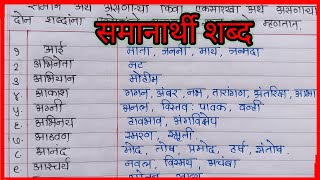 समान अर्थ असणाऱ्या किंवा एकसारखा अर्थ असणाऱ्या
दोन शब्दांना म्हणतात.
समानार्थी शब्द
१ आई माता, जननी, माय, जन्मदा
२ अभिनेता नट
३ अभियान मोहीम
४ आकाश गगन, अंबर, नभ, तारांगण, अंतरिक्ष, आभा
५ अग्नी अनल, विस्तव, पावक, वन्ही
६ अभिनय हावभाव, अंगविक्षेप
७ आठवण स्मरण, स्मृती
८ आनंद मोद, तोष, प्रमोद, हर्ष, संतोष
९ आश्चर्य नवल, विस्मय, अचंबा